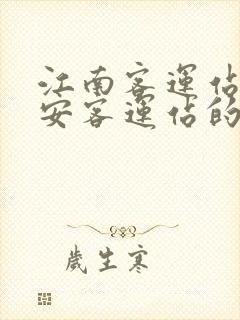 江南客運佔
安客運佔的
歲生寒